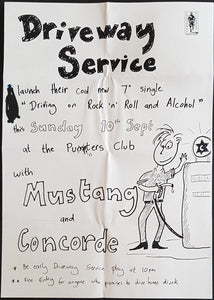 Driveway
Service
launch their cool new 7" single
"Driving on Rock 'n' Roll and Alcohol"
this Sunday 10th Sept
at the Punters Club
with
Mustang
and
Concorde
* Be early Driveway Service play at 10pm
** Free Entry for anyone who promises to drive home drunk